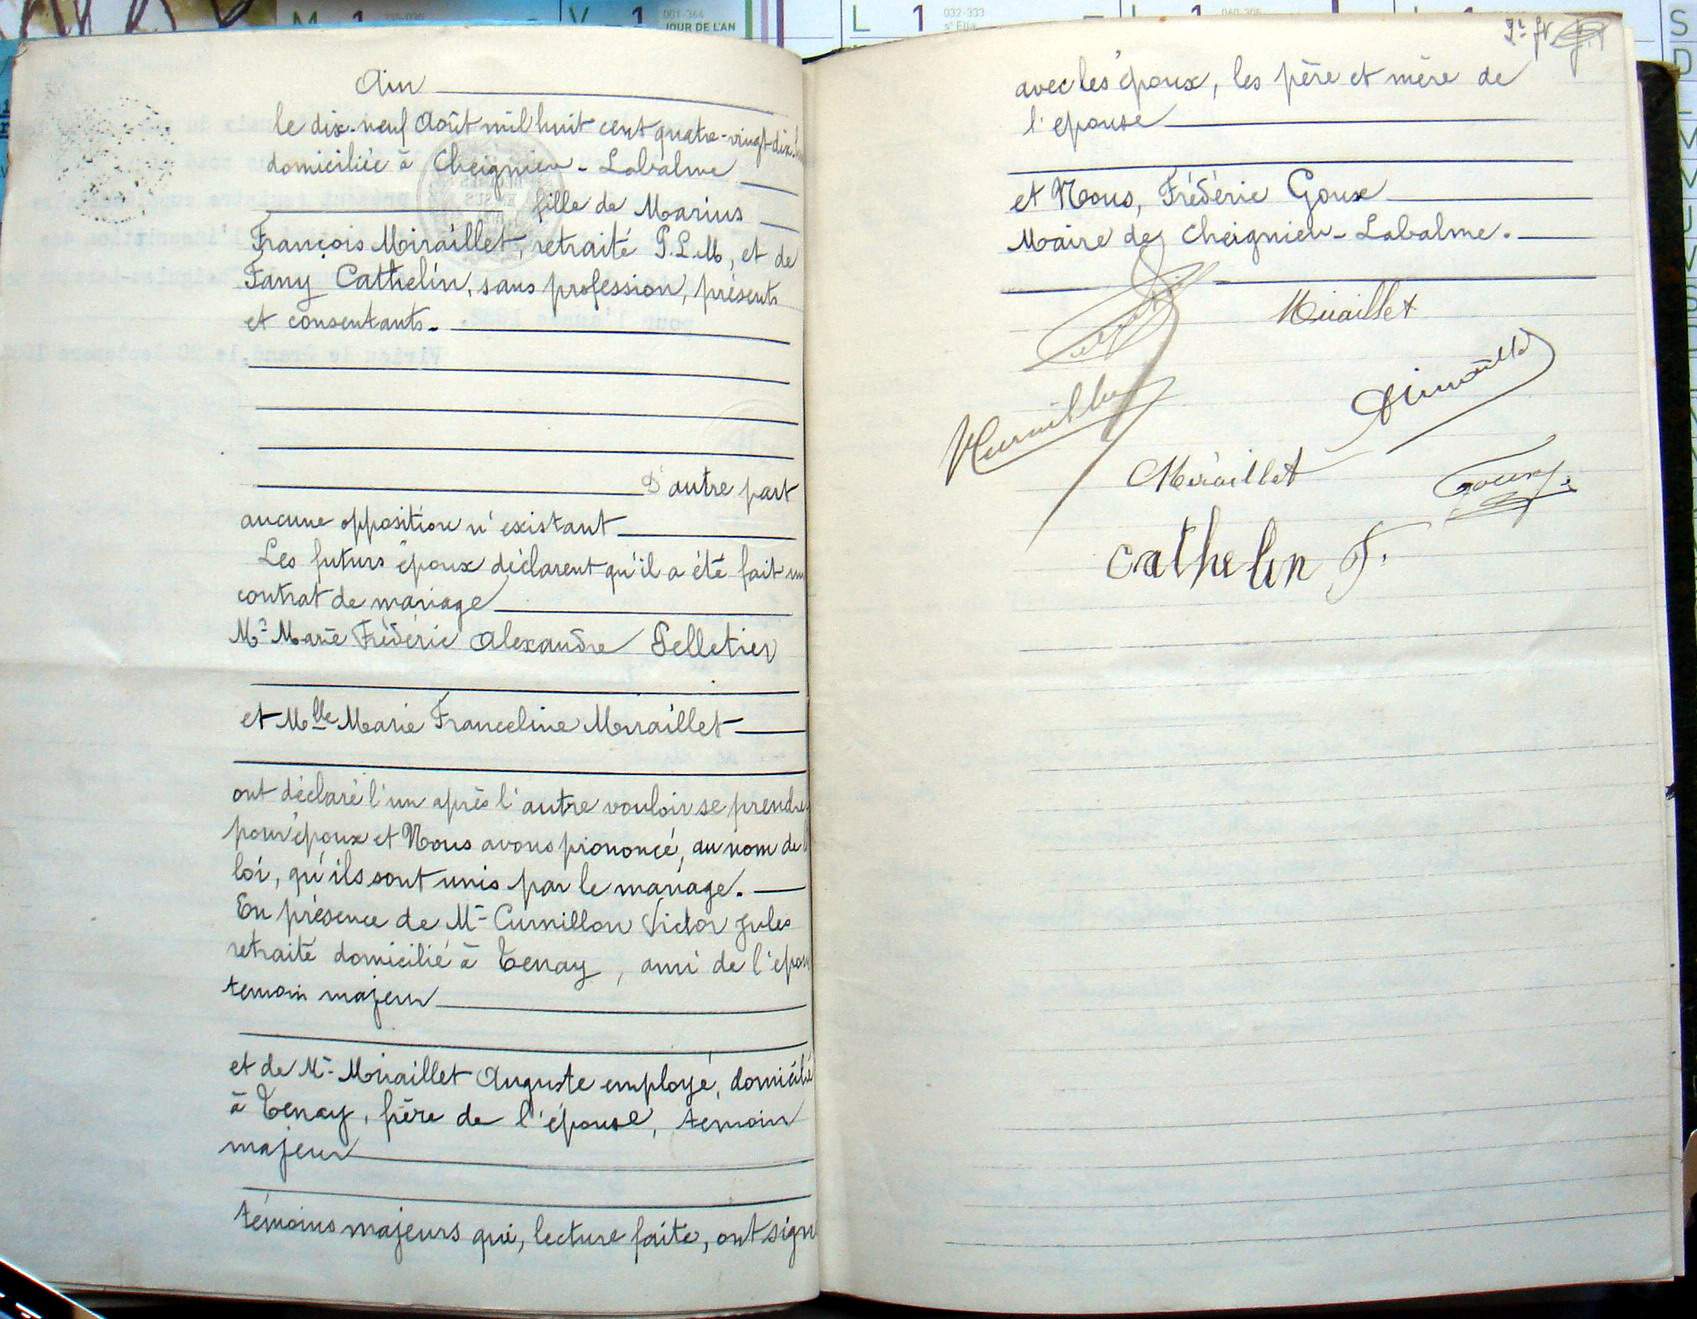 Ain
le dix-neuf Août mil huit cent quatre-vingt-dix
domiciliée à Cheignieu-Labalme
fille de Marius
François Miraillet, retraité P.L.M, et de
Fany Cathelin, sans profession, présents
et consentants.
D'autre part
aucune opposition n'existant
Les futurs époux déclarent qu'il a été fait un
contrat de mariage
Mr Marie Frédéric Alexandre Pelletier
et Mlle Marie Franceline Miraillet
ont déclaré l'un après l'autre vouloir se prendre
pour époux et Nous avons prononcé, au nom de
loi, qu'ils sont unis par le mariage.
En présence de Mr Curnillon Victor Jules
retraité domicilié à Tenay, ami de l'épou
temoin majeur
et de Mr Miraillet Auguste employé, domicilié
à Tenay, frère de l'épouse, temoin
majeur
témoins majeurs qui, lecture faite, ont sign
avec les époux, les père et mère de
l'epouse
et Nous, Frédéric Goux
Maire de Cheignieu-Labalme.
Miraillet
Miraillet
Goux
Cathelin F.